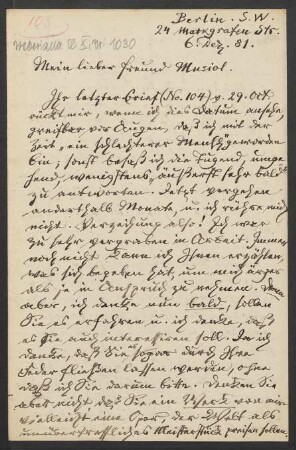 Berlin. S.W.
24 Markgrafen Str.
6. Dez. 81.
Mein lieber Freund Musiol.
Ihr letzter Brief (No. 104) v. 29. Oct.
rückt mir, wenn ich dies Datum ansehe,
greifbar vor Augen, daß ich mit der
Zeit ein schlechterer Mensch geworden
bin; sonst besaß ich die Tugend, umge
hend, wenigstens äußerst sehr bald
zu antworten. Jetzt vergehen
anderthalb Monate, u. ich rühre mich
nicht. Verzeihung also! Ich war
zu sehr vergraben in Arbeit. Immer
noch nicht kann ich Ihnen erzählen,
was sich begeben hat, um mich ärger
als je in Anspruch zu nehmen. Dann
aber, ich denke nun bald, sollen
Sie es erfahren u. ich denke, daß
es Sie auch interessiren soll. Ja ich
denke, daß Sie sogar durch Ihre
Feder fließen lassen werden, ohne
daß ich Sie darum bitte. Denken Sie
aber nicht das ein Werk von mir
vielleicht eine Oper, der Welt als
unübertreffliches Meisterstück preisen sollen.